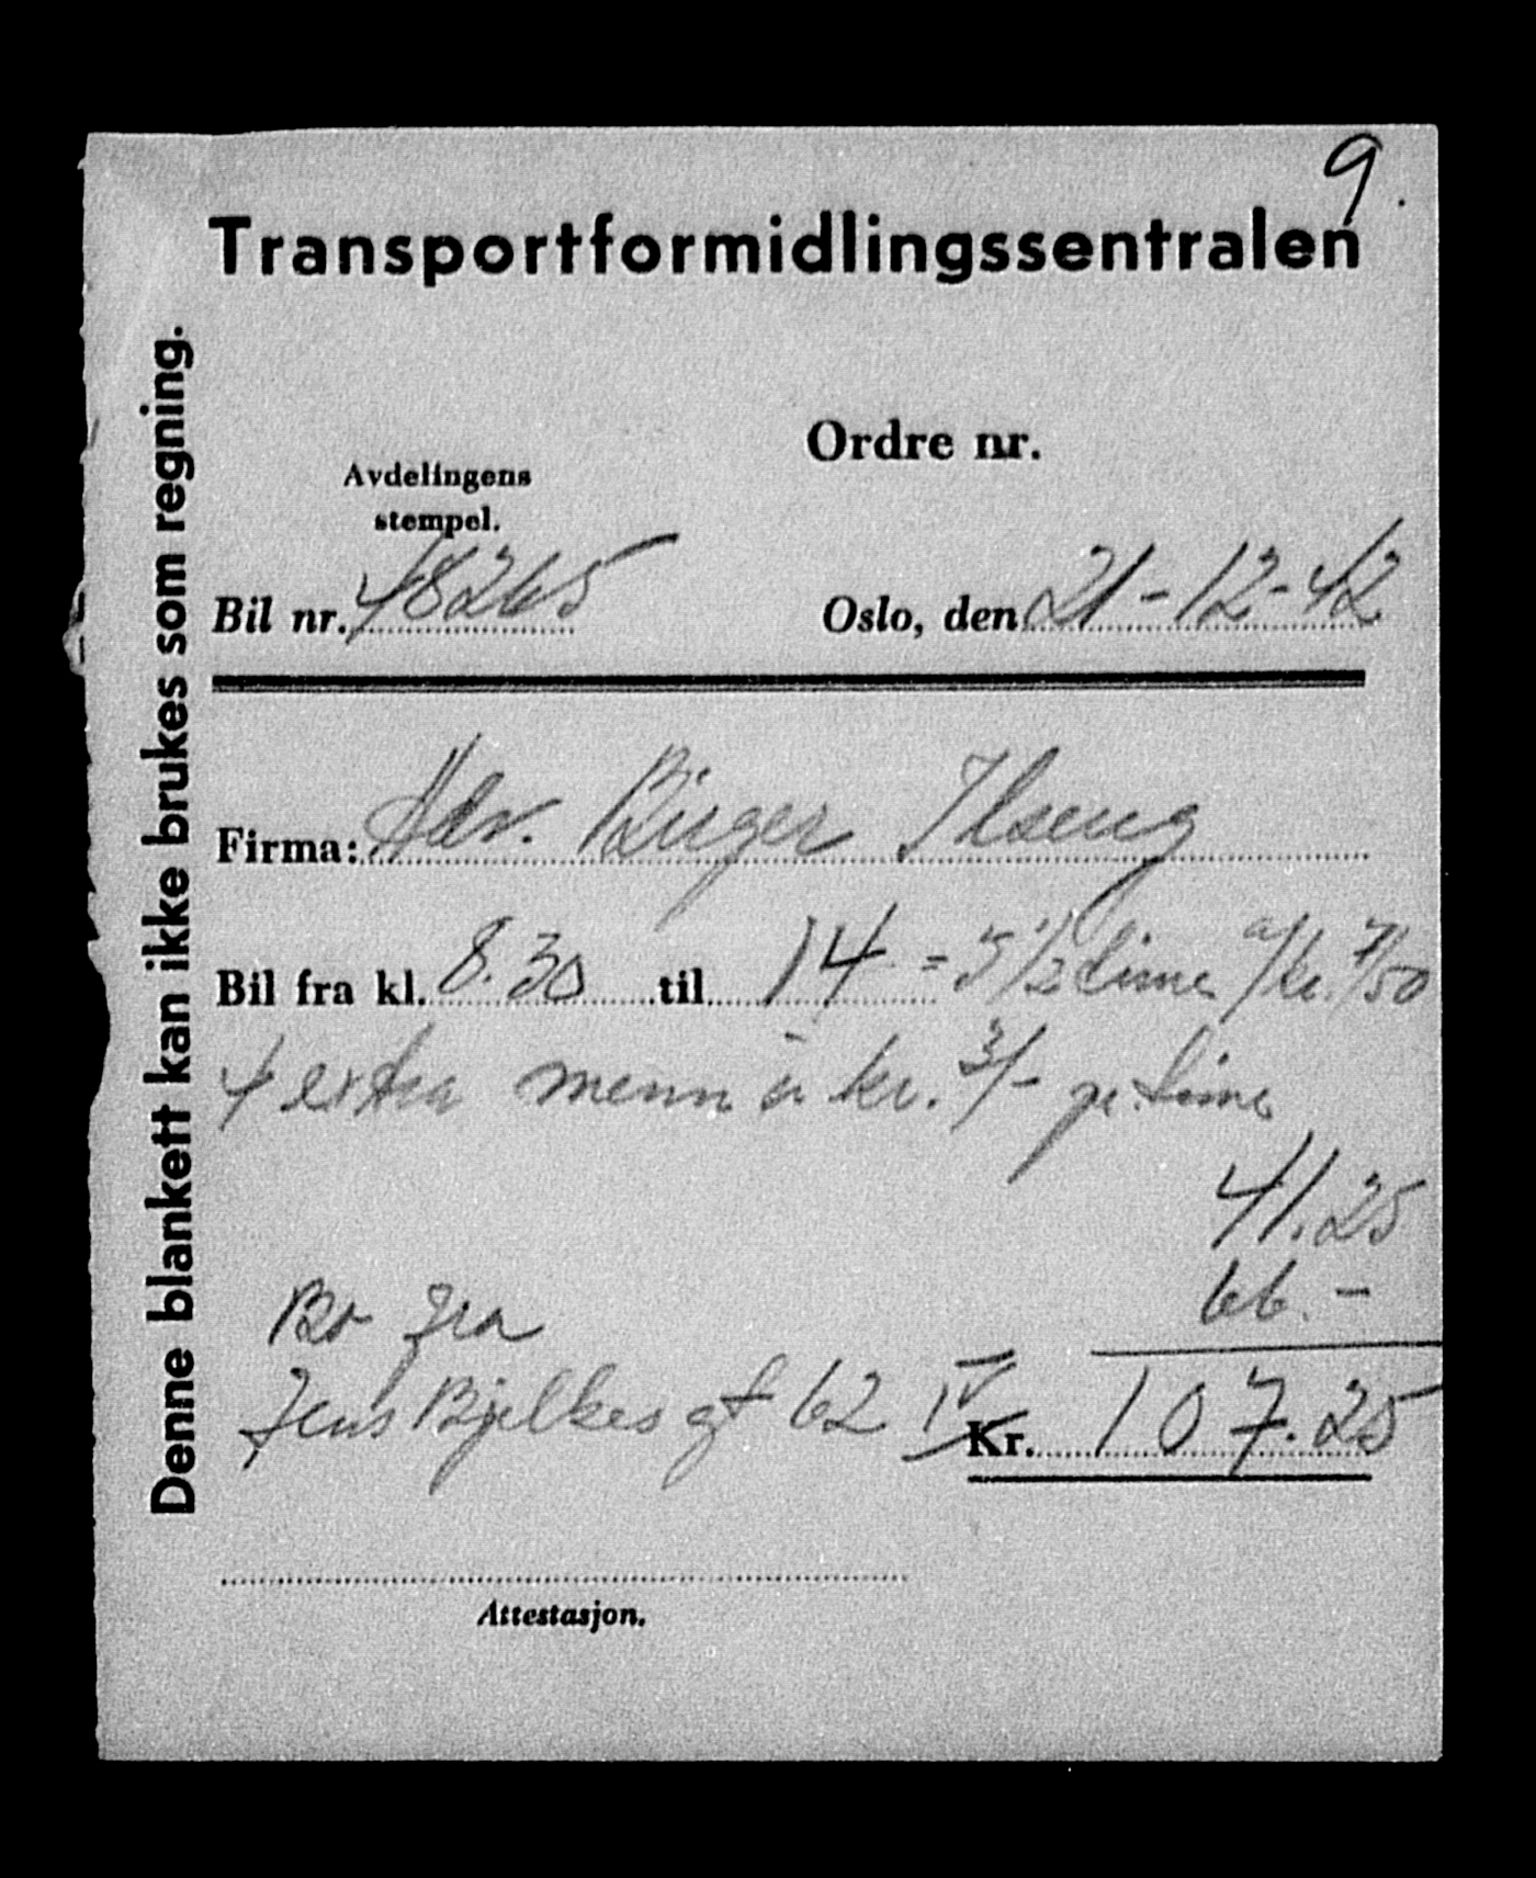 9.
Transportformidlingssentralen
Denne blankett kan ikke brukes som regning.
Ordre nr.
Avdelingens
stempel.
Bil nr. 48265 Oslo, den 21-12-42
Firma: Adv. Birger Ilseng
Bil fra kl. 8.30 til 14 = 5 1/2 time a/kr. 7/50
4 extra menn à kr. 3/- pr. time
41.25
66.-
Bo fra
Jens Bjelkes gt 62 IV Kr. 107.25
Attestasjon.